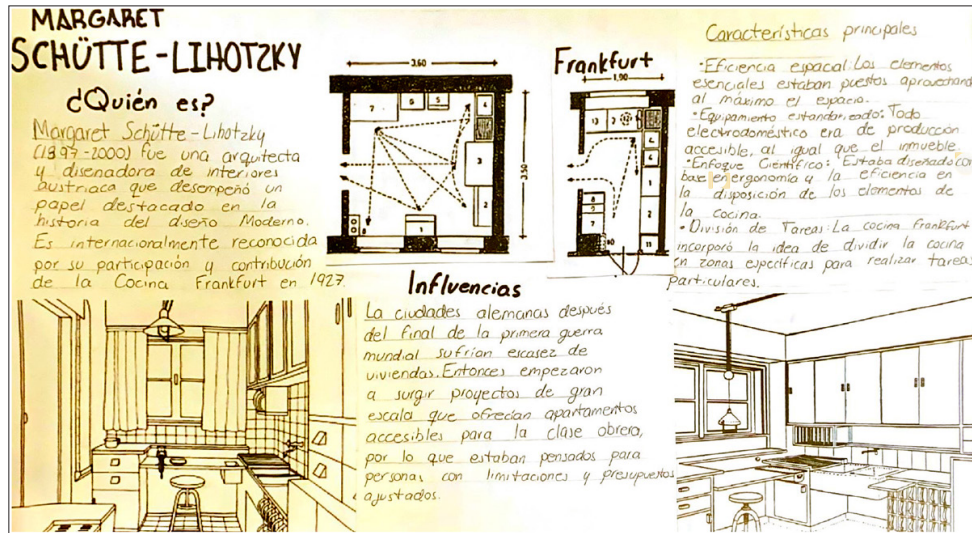 MARGARET
SCHÜTTE-LIHOTZKY
¿Quién es?
Margaret Schütte-Lihotzky
(1897-2000) fue una arquitecta
y disenadora de interiores
austriaca que desempeñó un
papel destacado en la
historia del diseño Moderno.
Es internacionalmente reconocida
por su participación y contribución
de la Cocina Frankfurt en 1927.
3,60
3,50
7
6
5
4
3
2
1
8
Frankfurt
1,90
Influencias
La ciudades alemanas después
del final de la primera guerra
mundial sufrian escasez de
viviendas. Entonces empezaron
a surgir proyectos de gran
escala que ofrecian apartamentos
accesibles para la clase obrera,
por lo que estaban pensados para
personas con limitaciones y presupuestos
ajustados.
Características principales
•Eficiencia espacial: Los elementos
esenciales estaban puestos aprovechand
al máximo el espacio.
•Equipamiento estandarizado: Todo
electrodoméstico era de producción
accesible, al igual que el inmueble.
•Enfoque Científico: Estaba diseñado con
base en ergonomía y la eficiencia en
la disposición de los elementos de
la cocina.
•División de Tareas: La cocina Frankfurt
incorporó la idea de dividir la cocina
en zonas específicas para realizar tareas
particulares.